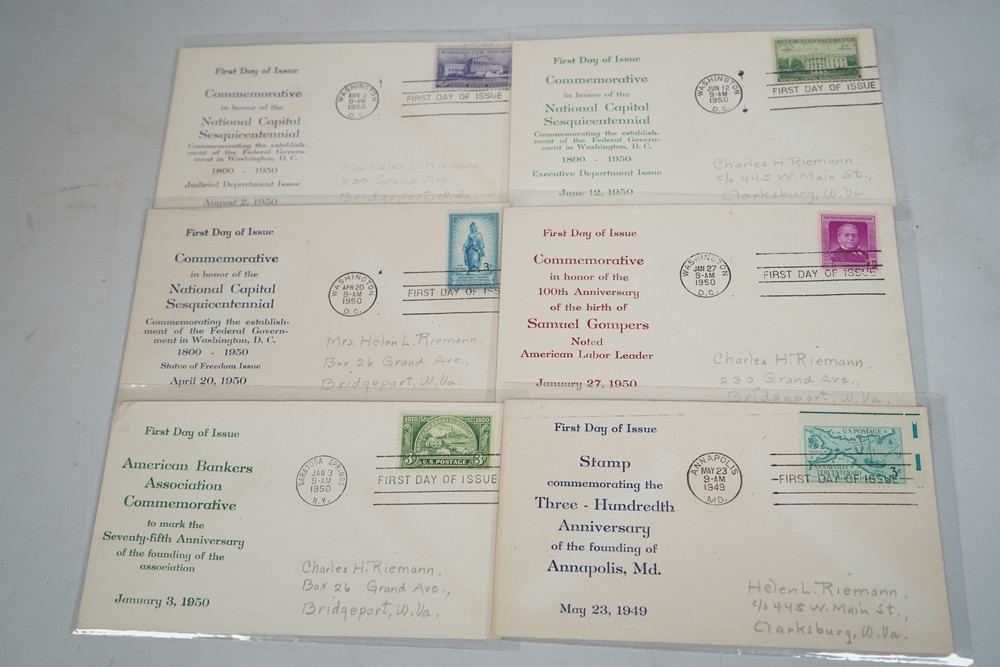 First Day of Issue
Commemorative
in honor of the
National Capital
Sesquicentennial
Commemorating the establish-
ment of the Federal Govern-
ment in Washington, D. C.
1800 - 1950
Judicial Department Issue
August 2, 1950
WASHINGTON
AUG 2
9-AM
1950
D. C.
FIRST DAY OF ISSUE
Mrs. Helen L. Riemann,
230 Grand Ave.,
Bridgeport, W.Va.
First Day of Issue
Commemorative
in honor of the
National Capital
Sesquicentennial
Commemorating the establish-
ment of the Federal Govern-
ment in Washington, D. C.
1800 - 1950
Executive Department Issue
June 12, 1950
WASHINGTON
JUN 12
9-AM
1950
D.C.
FIRST DAY OF ISSUE
Charles H. Riemann.
c/o 445 W. Main St.,
Clarksburg, W.Va.
First Day of Issue
Commemorative
in honor of the
National Capital
Sesquicentennial
Commemorating the establish-
ment of the Federal Govern-
ment in Washington, D. C.
1800 - 1950
Statue of Freedom Issue
April 20, 1950
WASHINGTON
APR 20
9-AM
1950
D.C.
3¢
FIRST DAY OF ISS
Mrs. Helen L. Riemann.
Box 26 Grand Ave.,
Bridgeport, W.Va.
First Day of Issue
Commemorative
in honor of the
100th Anniversary
of the birth of
Samuel Gompers
Noted
American Labor Leader
January 27, 1950
WASHINGTON
JAN 27
9-AM
1950
D.C.
UNITED STATES POSTAGE
FIRST DAY OF ISSUE
Charles H. Riemann
230 Grand Ave.,
Bridgeport, W.Va.
First Day of Issue
American Bankers
Association
Commemorative
to mark the
Seventy-fifth Anniversary
of the founding of the
association
January 3, 1950
SARATOGA SPRINGS
JAN 3
9-AM
1950
N.Y.
1875 1950
3¢ U.S. POSTAGE 3¢
FIRST DAY OF ISSUE
Charles H. Riemann.
Box 26 Grand Ave.,
Bridgeport, W.Va.
First Day of Issue
Stamp
commemorating the
Three - Hundredth
Anniversary
of the founding of
Annapolis, Md.
May 23, 1949
ANNAPOLIS
MAY 23
9-AM
1949
MD.
U.S. POSTAGE
3¢
FIRST DAY OF ISSUE
Helen L. Riemann.
c/o 445 W. Main St.,
Clarksburg, W.Va.